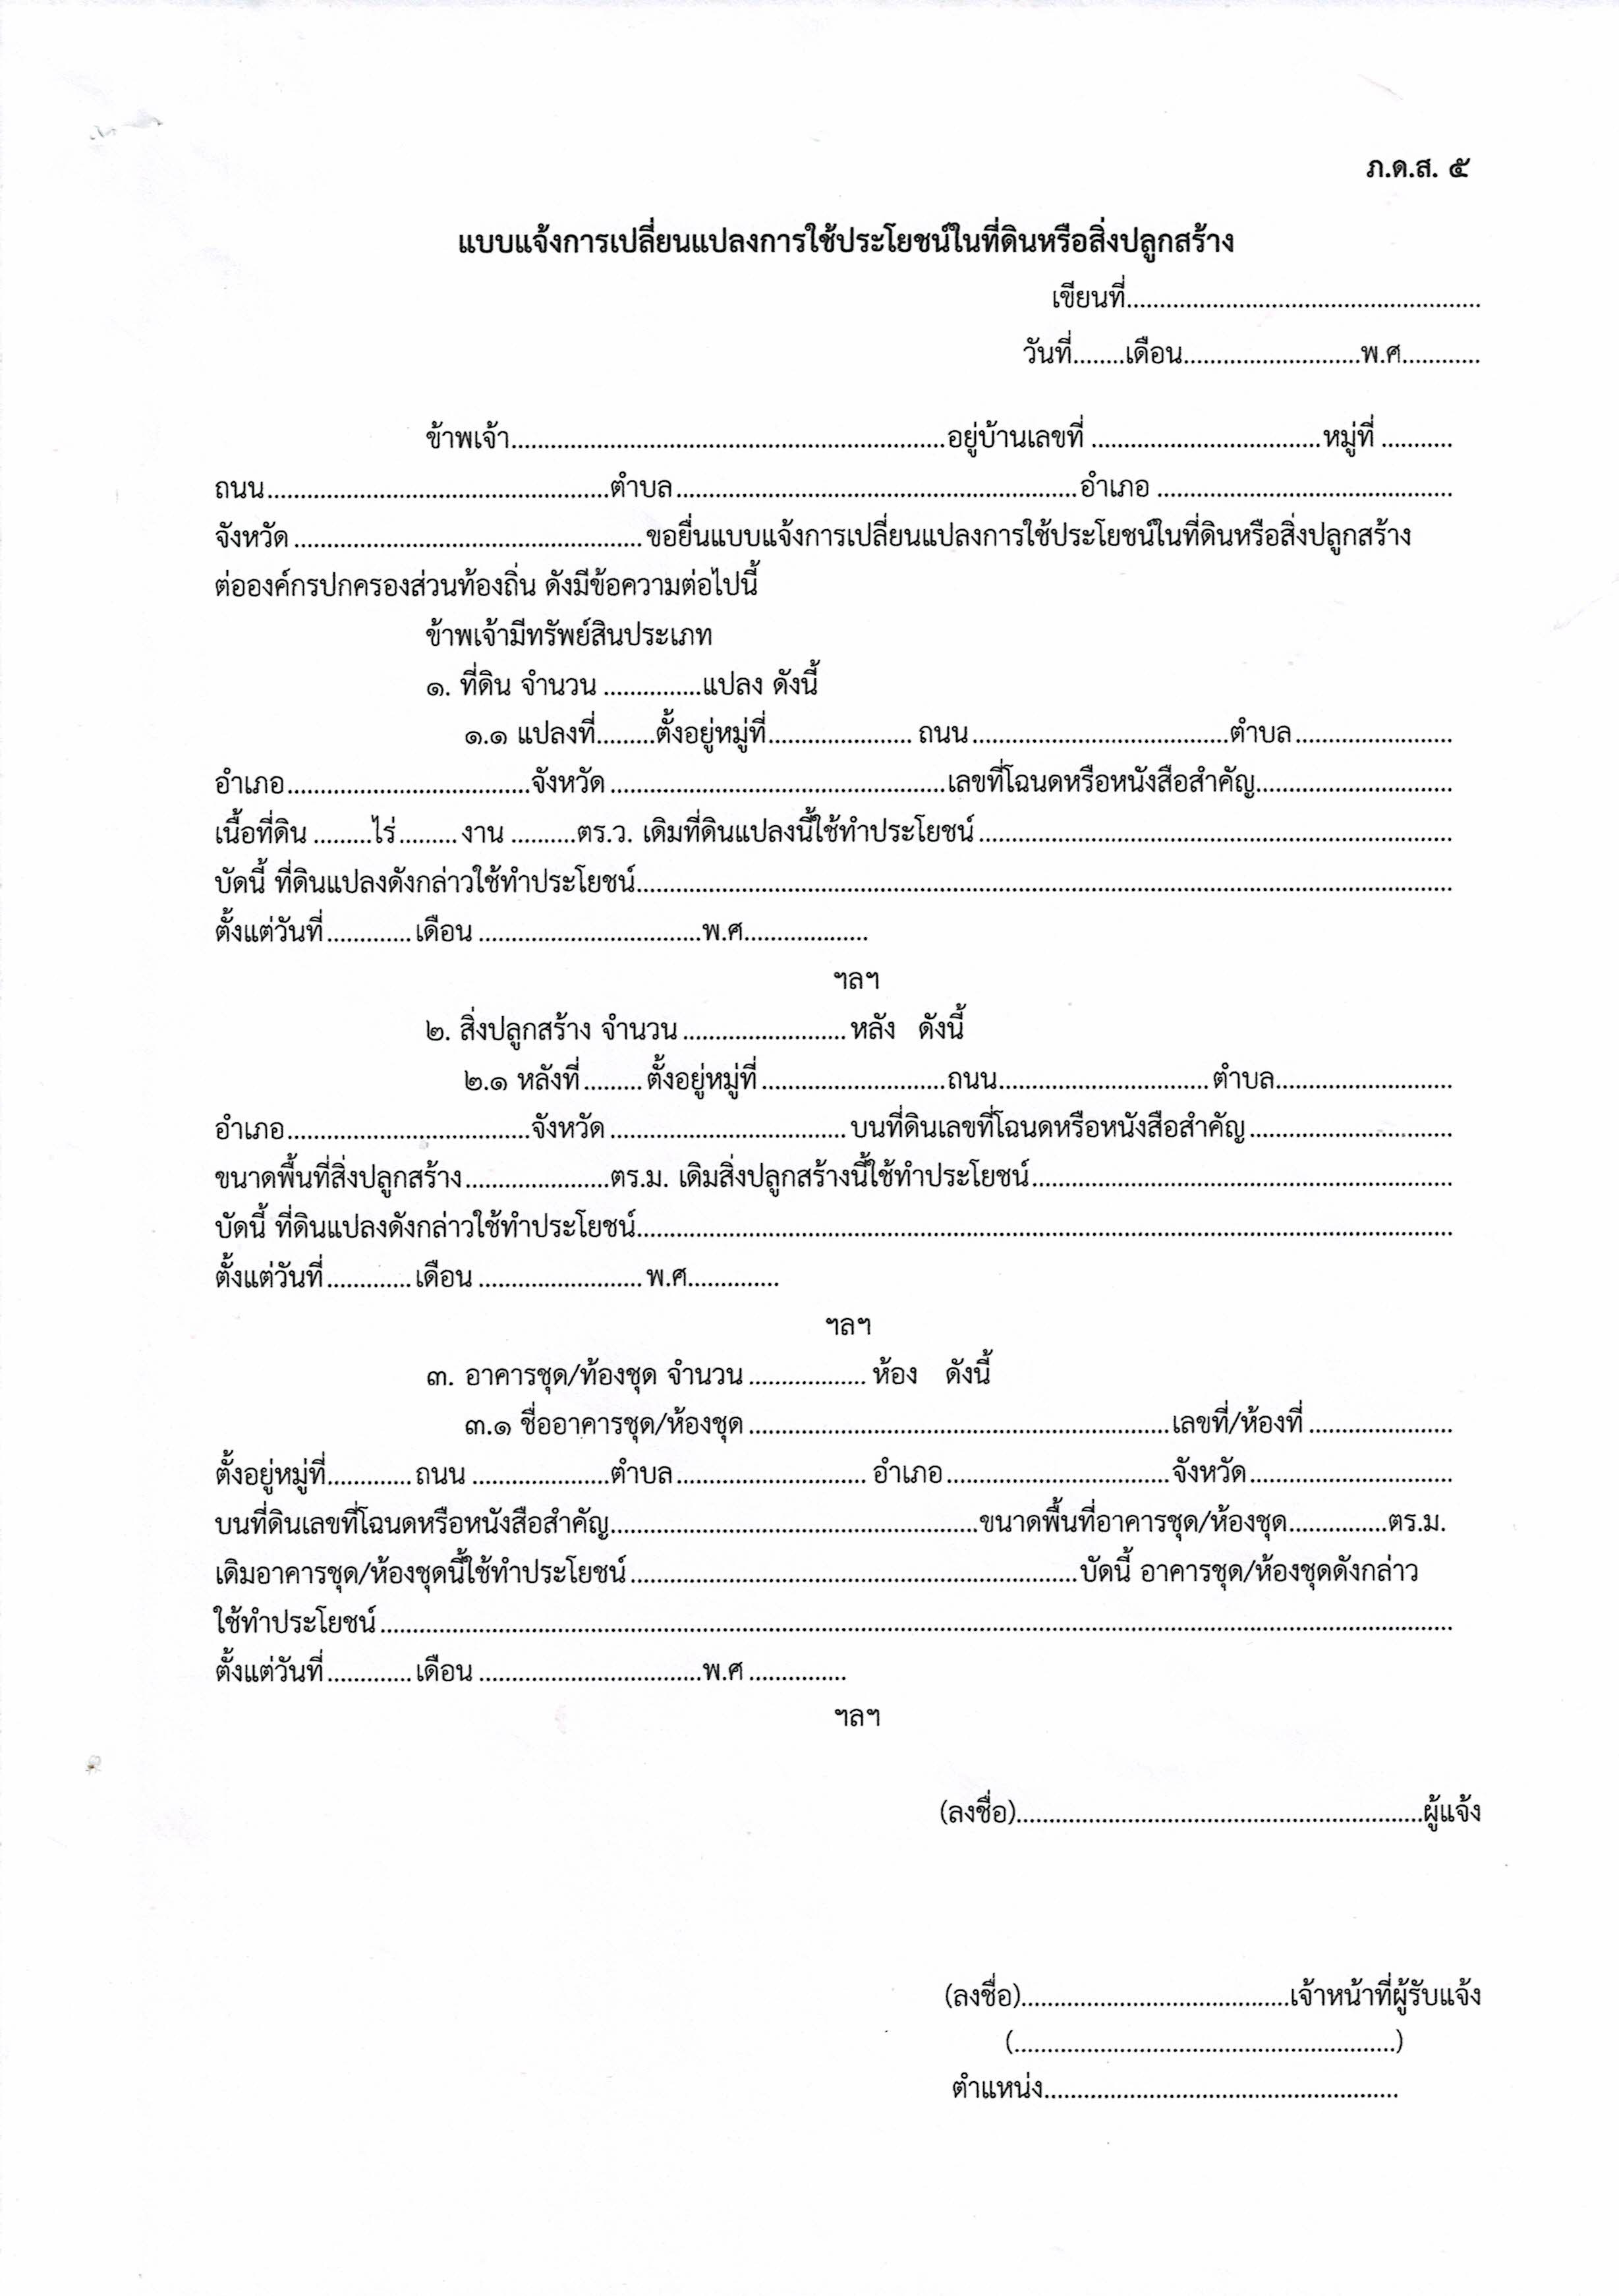 ภ.ด.ส. ๕
แบบแจ้งการเปลี่ยนแปลงการใช้ประโยชน์ในที่ดินหรือสิ่งปลูกสร้าง
เขียนที่......................................................
วันที่........เดือน...........................พ.ศ............
ข้าพเจ้า..................................................................อยู่บ้านเลขที่ ...................................หมู่ที่ ...........
ถนน....................................................ตำบล.............................................................อำเภอ .............................................
จังหวัด .....................................................ขอยื่นแบบแจ้งการเปลี่ยนแปลงการใช้ประโยชน์ในที่ดินหรือสิ่งปลูกสร้าง
ต่อองค์กรปกครองส่วนท้องถิ่น ดังมีข้อความต่อไปนี้
ข้าพเจ้ามีทรัพย์สินประเภท
๑. ที่ดิน จำนวน ...............แปลง ดังนี้
๑.๑ แปลงที่.........ตั้งอยู่หมู่ที่...................... ถนน.......................................ตำบล........................
อำเภอ.....................................จังหวัด ...................................................เลขที่โฉนดหรือหนังสือสำคัญ..............................
เนื้อที่ดิน .........ไร่.........งาน ..........ตร.ว. เดิมที่ดินแปลงนี้ใช้ทำประโยชน์........................................................................
บัดนี้ ที่ดินแปลงดังกล่าวใช้ทำประโยชน์............................................................................................................................
ตั้งแต่วันที่............. เดือน ..................................พ.ศ...................
ฯลฯ
๒. สิ่งปลูกสร้าง จำนวน......................... หลัง ดังนี้
๒.๑ หลังที่......... ตั้งอยู่หมู่ที่............................ถนน................................ตำบล...........................
อำเภอ.....................................จังหวัด .................................... บนที่ดินเลขที่โฉนดหรือหนังสือสำคัญ...............................
ขนาดพื้นที่สิ่งปลูกสร้าง......................ตร.ม. เดิมสิ่งปลูกสร้างนี้ใช้ทำประโยชน์................................................................
บัดนี้ ที่ดินแปลงดังกล่าวใช้ทำประโยชน์............................................................................................................................
ตั้งแต่วันที่............. เดือน ......................... พ.ศ..............
ฯลฯ
๓. อาคารชุด/ท้องชุด จำนวน .................. ห้อง ดังนี้
๓.๑ ชื่ออาคารชุด/ห้องชุด ................................................................เลขที่/ห้องที่ ......................
ตั้งอยู่หมู่ที่............. ถนน .....................ตำบล............................. อำเภอ..................................จังหวัด...............................
บนที่ดินเลขที่โฉนดหรือหนังสือสำคัญ........................................................ขนาดพื้นที่อาคารชุด/ห้องชุด...............ตร.ม.
เดิมอาคารชุด/ห้องชุดนี้ใช้ทำประโยชน์....................................................................บัดนี้ อาคารชุด/ห้องชุดดังกล่าว
ใช้ทำประโยชน์...................................................................................................................................................................
ตั้งแต่วันที่............. เดือน ..................................พ.ศ ...............
ฯลฯ
(ลงชื่อ)..............................................................ผู้แจ้ง
(ลงชื่อ).........................................เจ้าหน้าที่ผู้รับแจ้ง
(..........................................................)
ตำแหน่ง......................................................